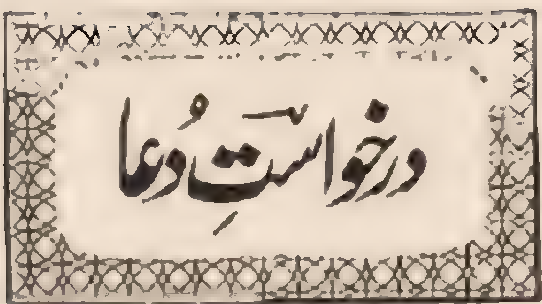 درخواستِ دُعا